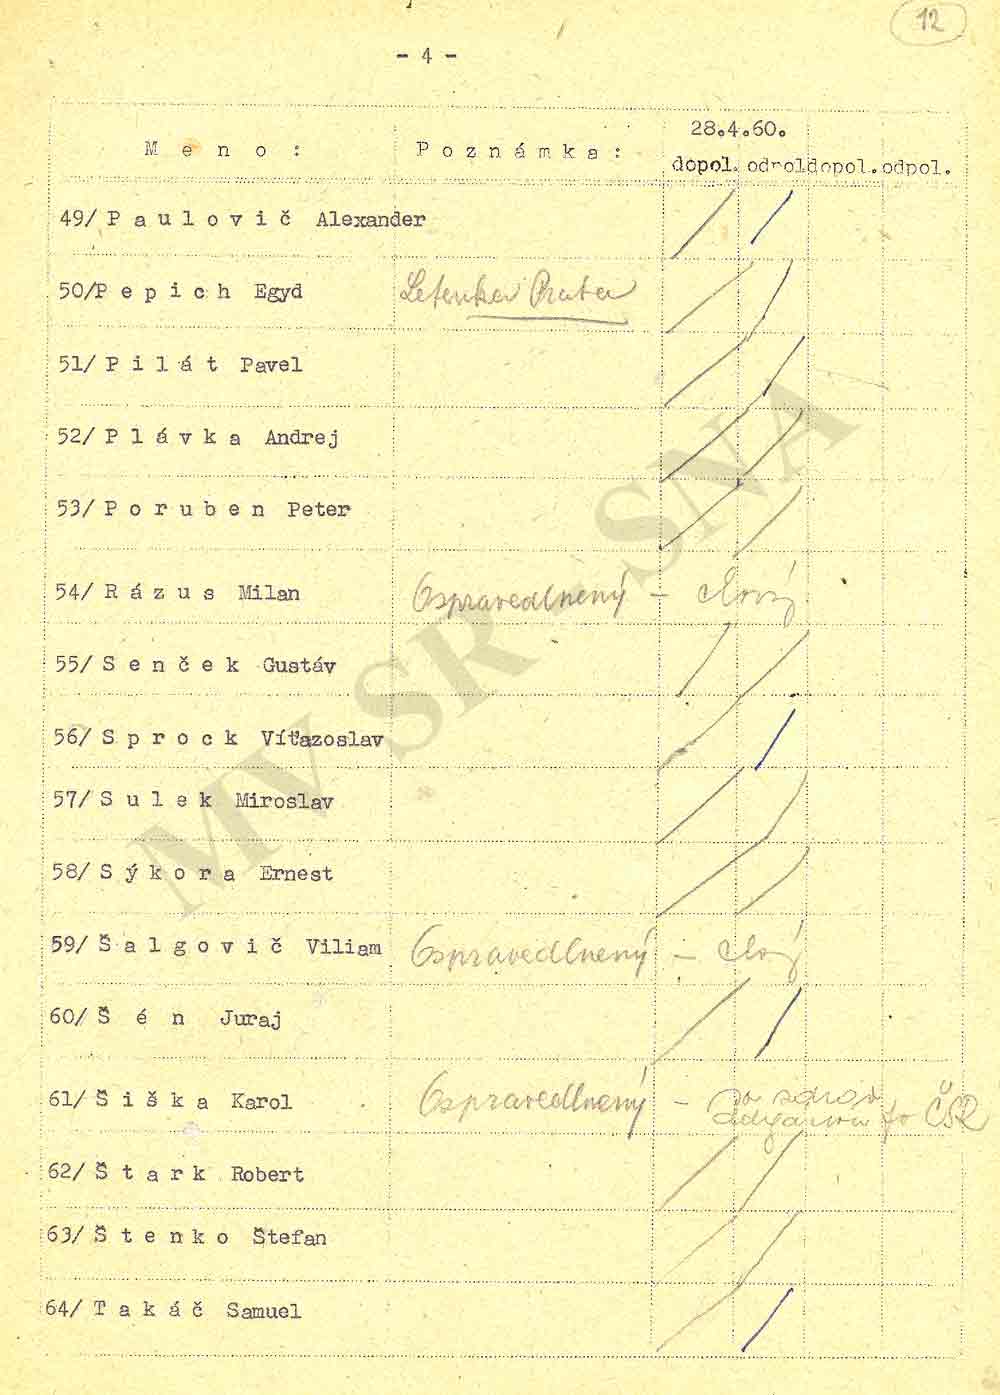 12
- 4 -
28.4.60.
M e n o : P o z n á m k a :
dopol. odpol dopol. odpol.
49/ P a u l o v i č Alexander
50/P e p i c h Egyd Letenka Praha
51/ P i l á t Pavel
52/ P l á v k a Andrej
53/ P o r u b e n Peter
54/ R á z u s Milan Ospravedlnený - chorý
55/ S e n č e k Gustáv
56/ S p r o c k Víťazoslav
57/ S u l e k Miroslav
58/ S ý k o r a Ernest
59/ Š a l g o v i č Viliam Ospravedlnený - chorý
60/ Š é n Juraj
61/ Š i š k a Karol Ospravedlnený - ČSR
62/ Š t a r k Robert
63/ Š t e n k o Štefan
64/ T a k á č Samuel
MV SR - SNA